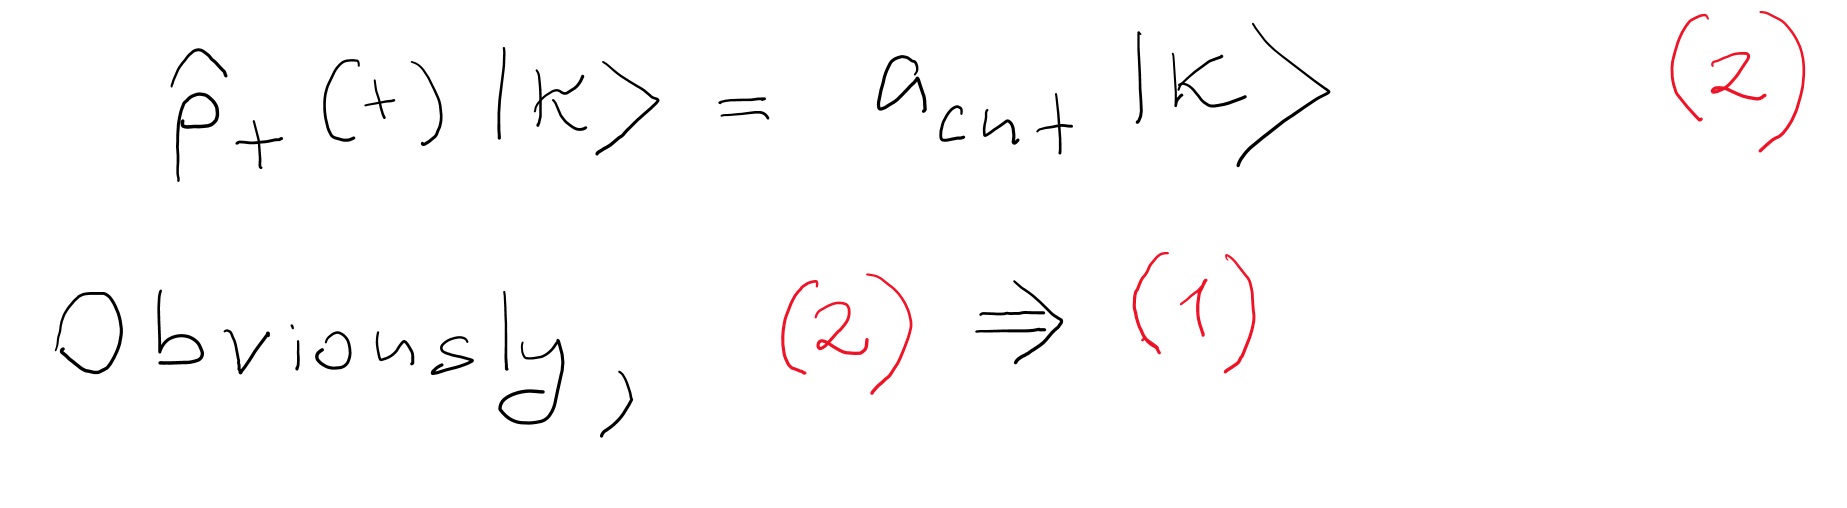 p̂₊(+)|k> = a_cn+ |k> (2)
Obviously, (2) ⇒ (1)